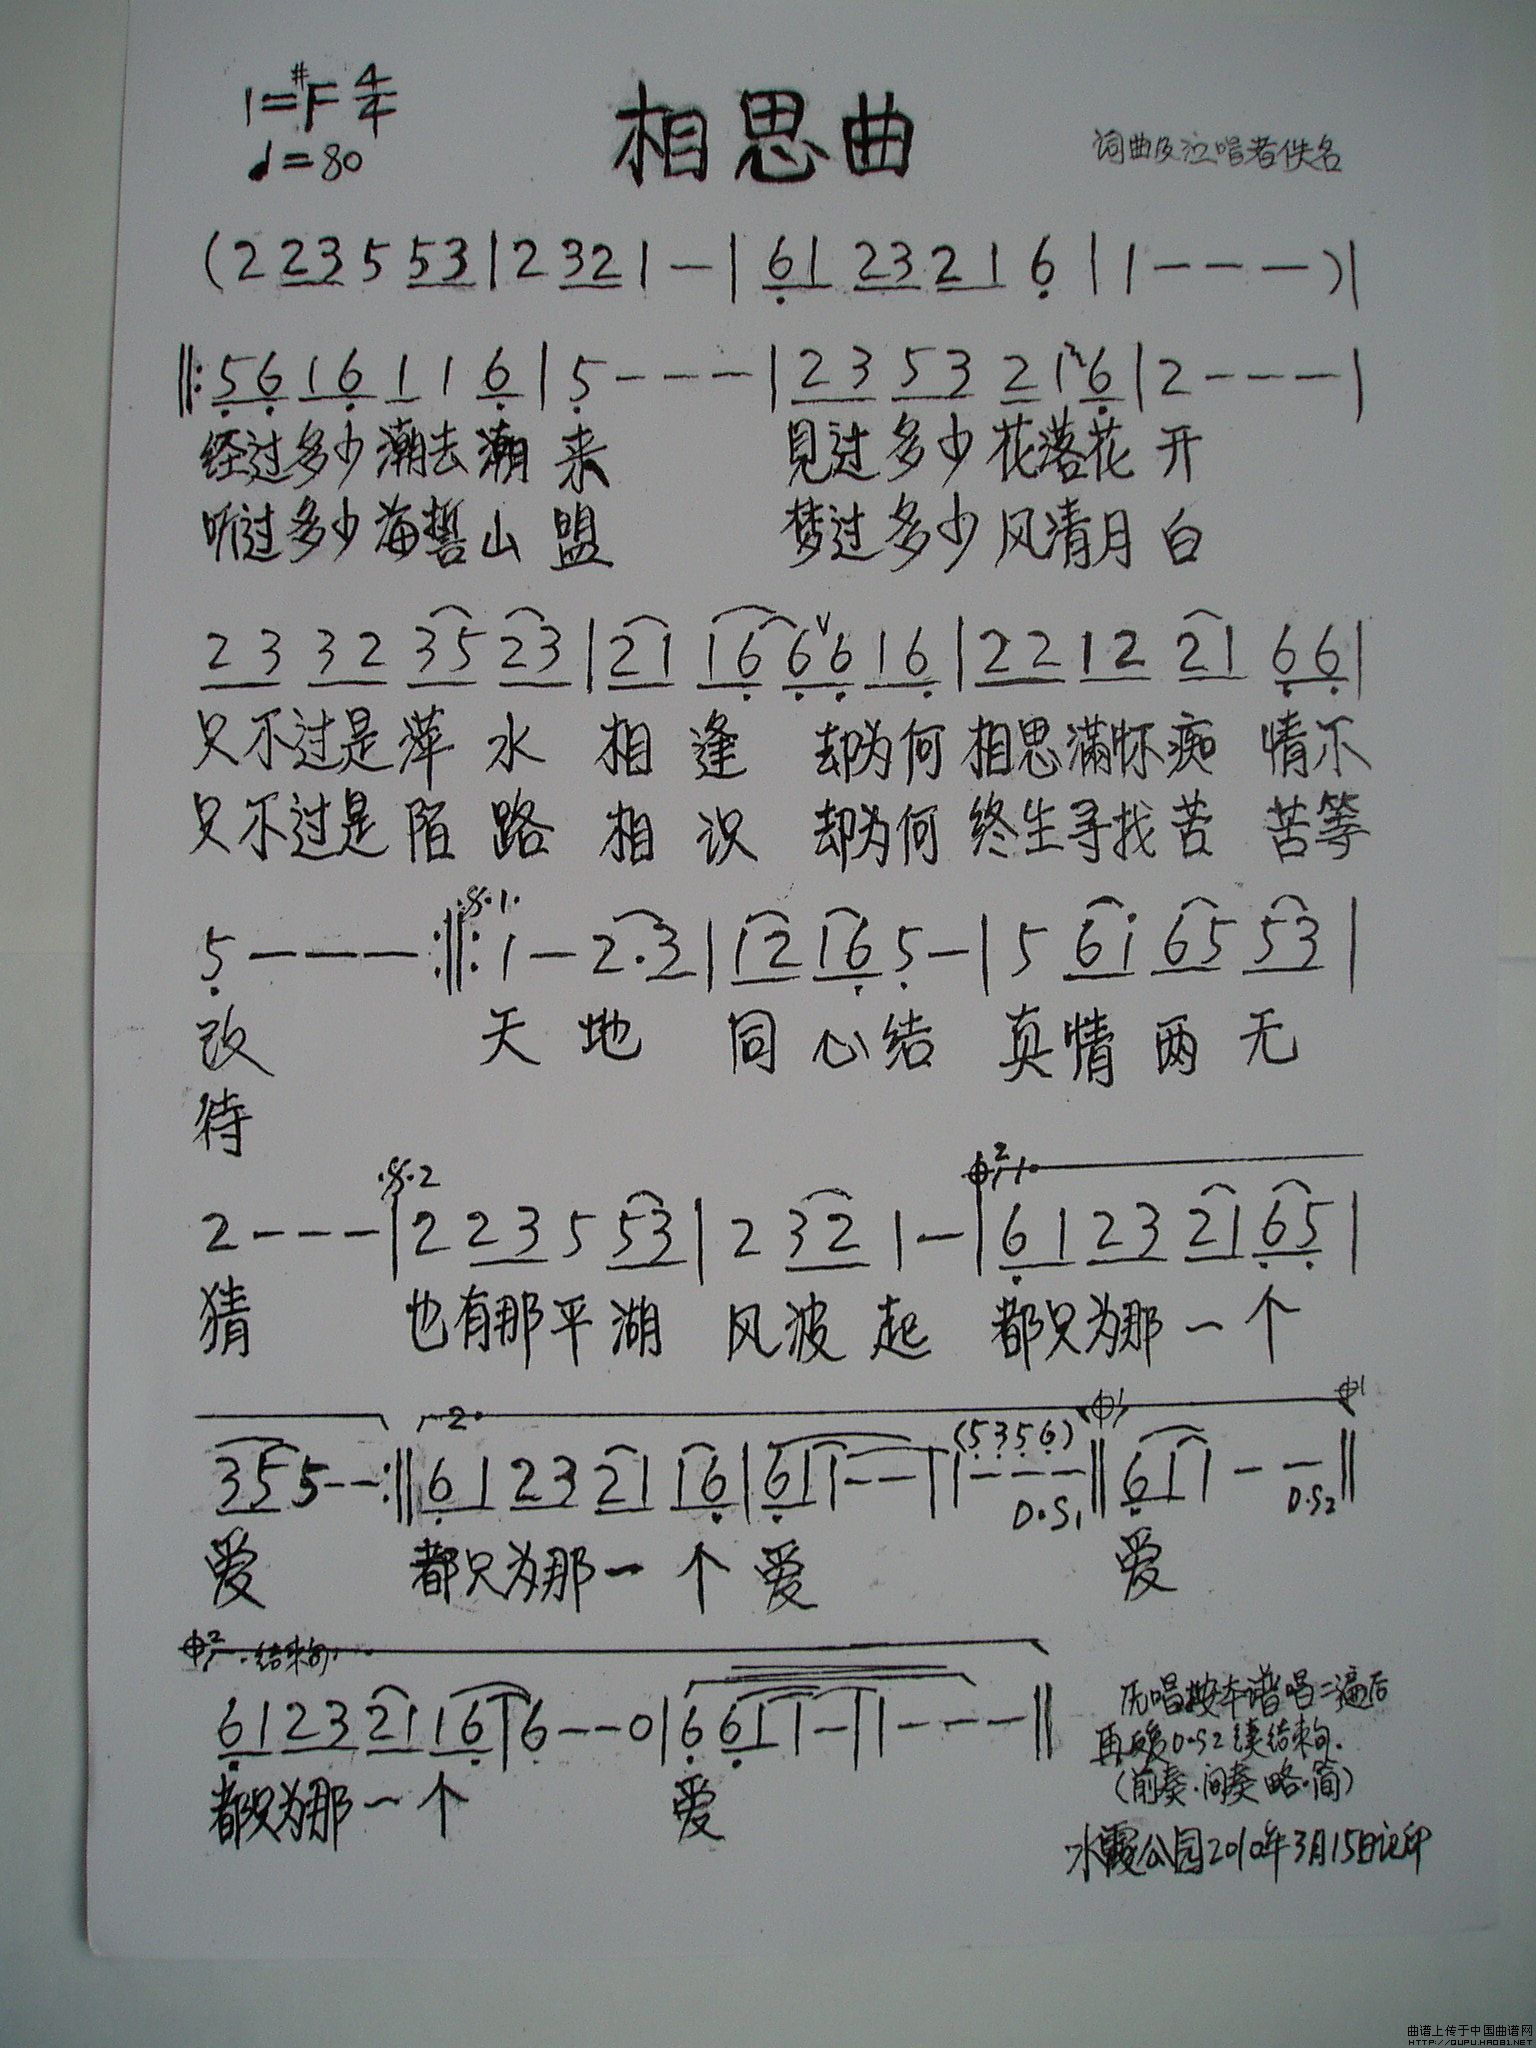 1=#F 4/4
♩=80
相思曲
词曲及泣唱者佚名
(2 23 5 53|2 32 1 -|61 23 21 6|1 - - -)|
‖:56 16 1 1 6|5 - - -|23 53 21 6|2 - - -|
经过多少潮去潮来 见过多少花落花开
听过多少海誓山盟 梦过多少风清月白
23 32 35 23|21 16 6∨6 16|22 12 21 66|
只不过是萍水相逢 却为何相思满怀痴情不
只不过是陌路相识 却为何终生寻找苦苦等
5 - - - :‖: 𝄋1 1 - 2·3|12 16 5 -|5 6i 65 53|
改 天地 同心结 真情两无
待
2 - - -|𝄋2 2 23 5 53|2 32 1 -|𝄌2 1. 61 23 21 65|
猜 也有那平湖 风波起 都只为那一个
35 5 - - :‖ 2. 61 23 21 16|61 1 - -|1 - - - (5356) D.S1‖𝄌1 61 1 - - D.S2 𝄌1‖
爱 都只为那一个爱 爱
𝄌2 结束句
61 23 21 16|6 - - 0|6 61 1 -|1 - - -‖
都只为那一个 爱
原唱按本谱唱二遍后
再反复D.S2续结束句.
(前奏.间奏略.简)
冰霞公园2010年3月15日记印
曲谱上传于中国曲谱网
HTTP://QUPU.HAO81.NET